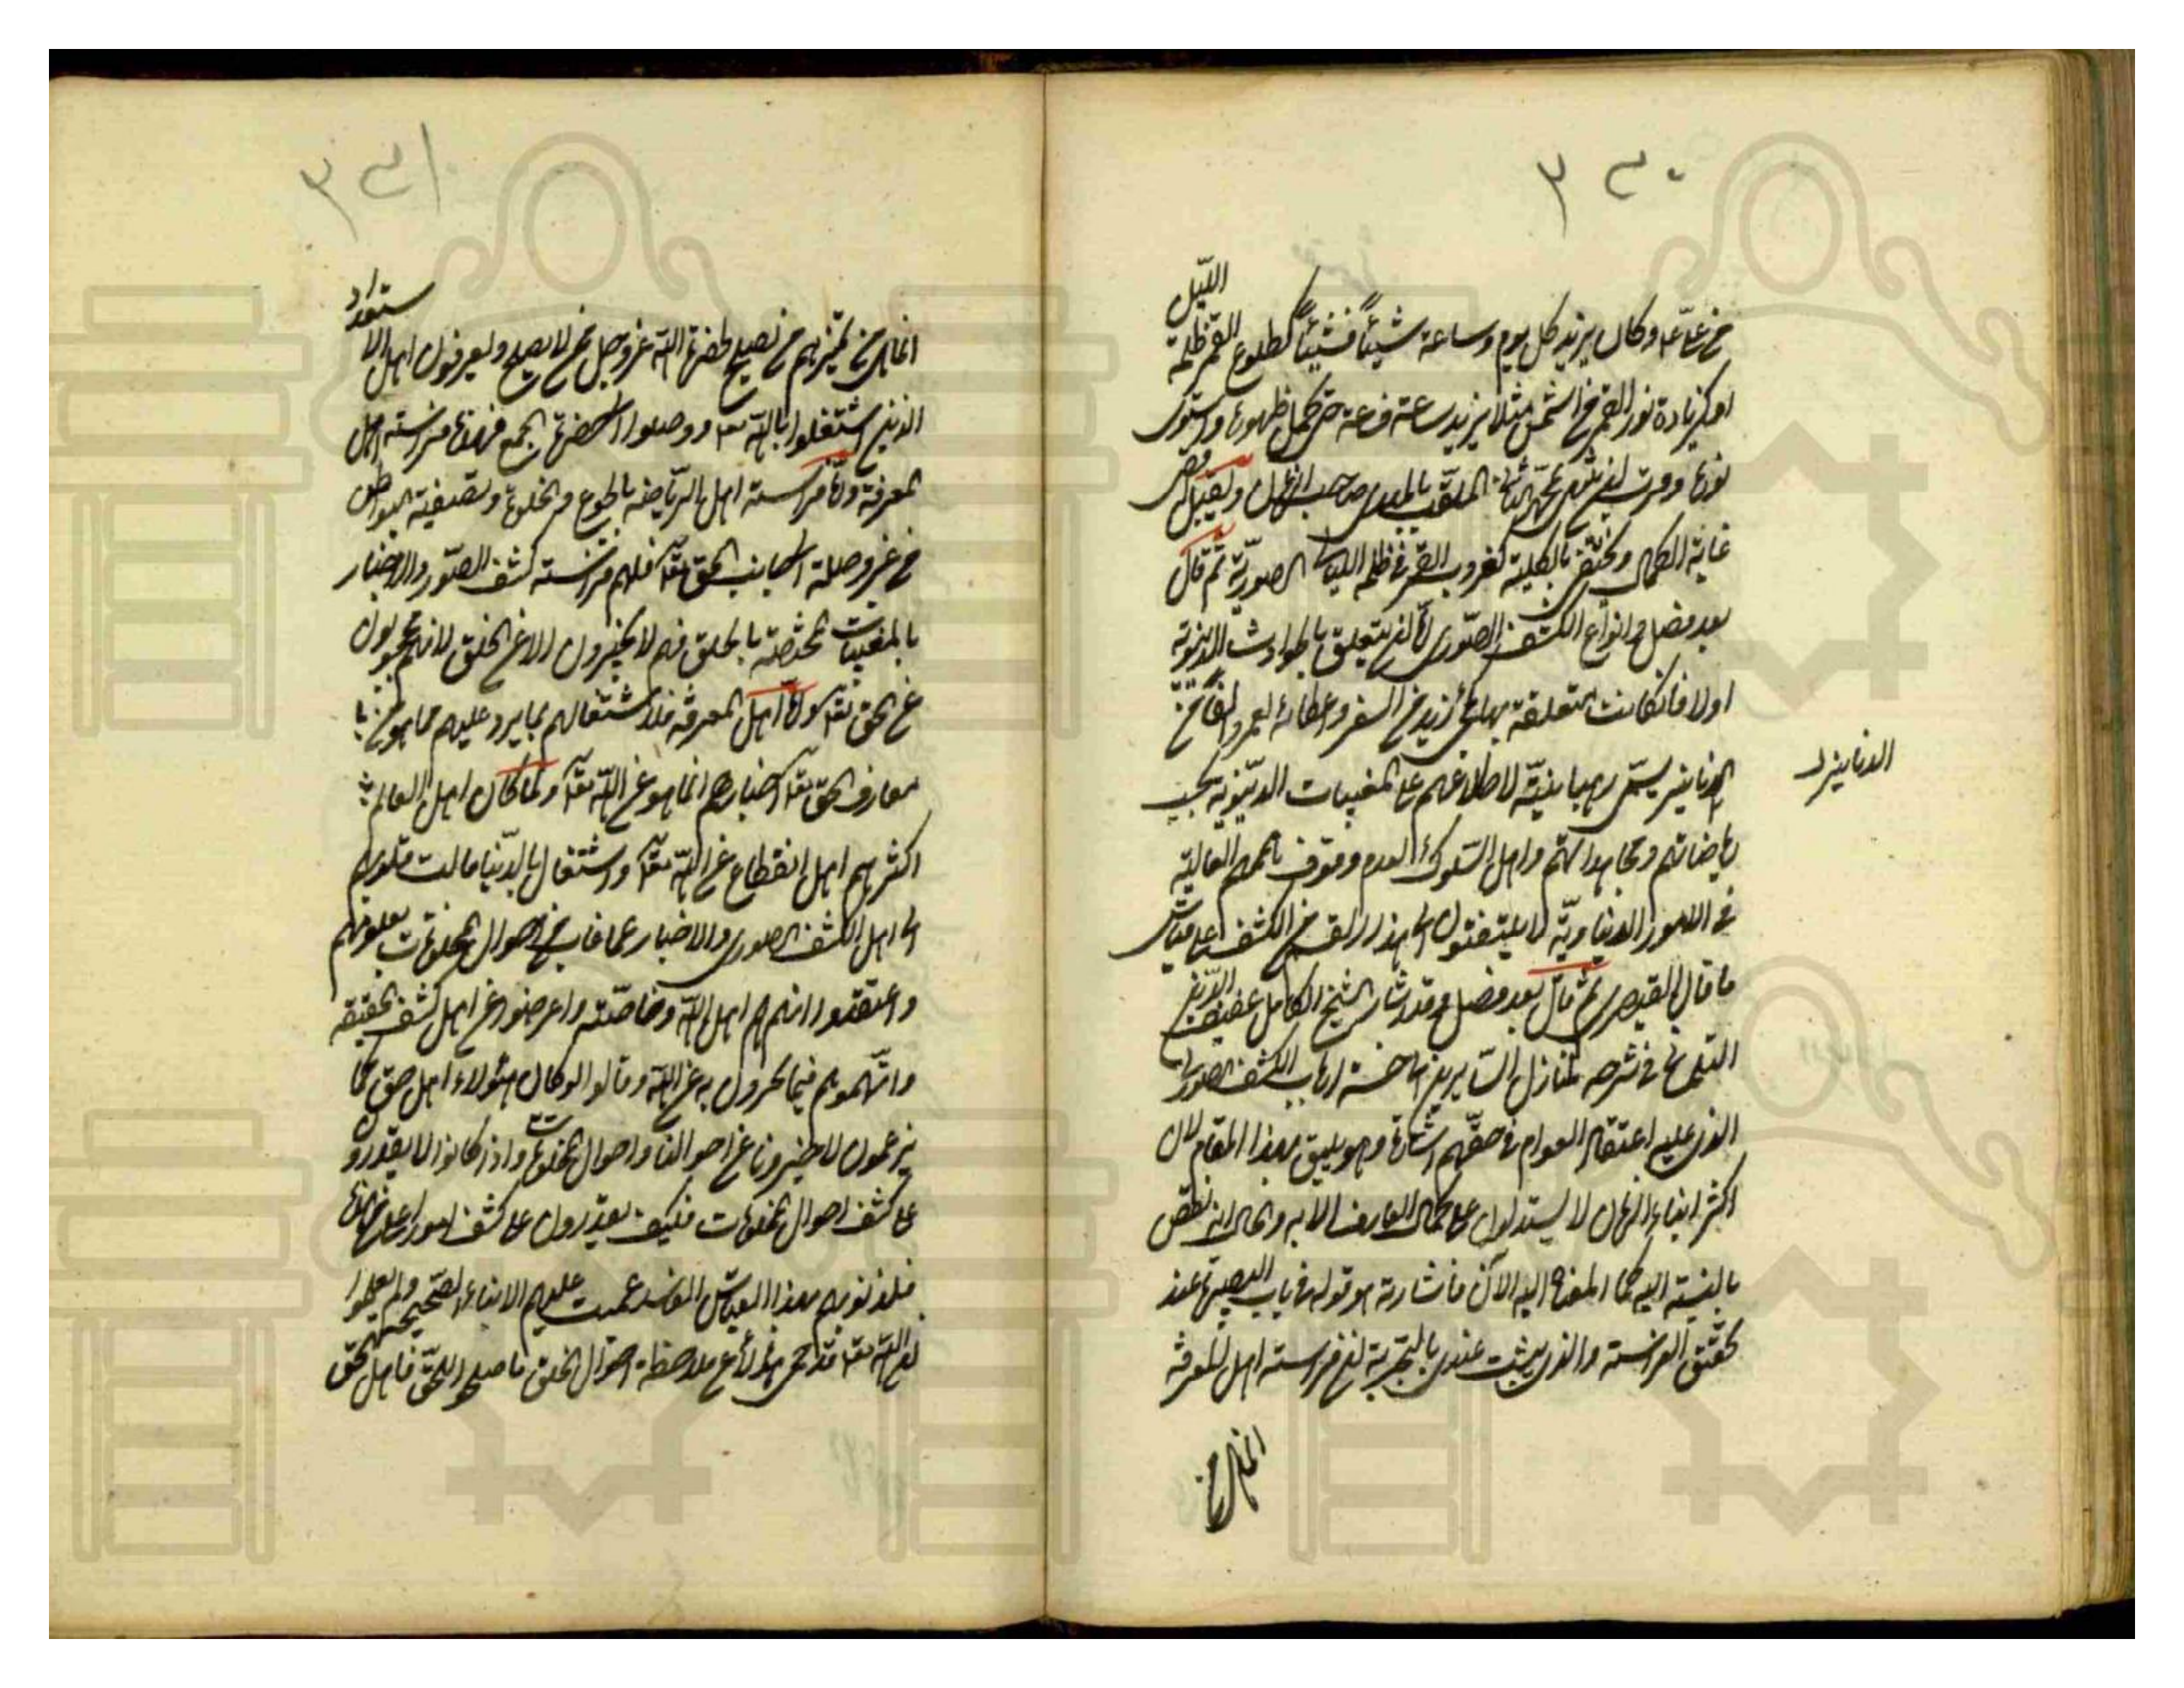 ٣٤٠
الليل
من علي ع وكان يزيد كل يوم وساعة شيئاً فشيئاً كطلوع القمر ظلمة
او كزيادة نور القمر من الشمس مثلا يزيد ساعة فساعة حتى كمل ظهوره واستوى
نوره الملقب بالمهدي صاحب الزمان
غاية الكمال ويختفي بالكلية كغروب القمر في ظلمة الليالي الصورية ثم قال
بعد فصل وانواع الكشف الصوري اما ان يتعلق بالحوادث الدنيوية
اولا فان كانت متعلقة بها كمجئ زيد من السفر واعطائه لعمرو الفا من
الدنانير
الدنانير يسمى رهبانية لاطلاعهم على المغيبات الدنيوية بحسب
رياضاتهم ومجاهداتهم واهل السلوك لعدم وقوف هممهم العالية
في الامور الدنياوية لا يلتفتون الى هذا القسم من الكشف
ما قال القيصري ثم قال بعد فصل وقد اشار الشيخ الكامل عفيف الدين
التلمساني في شرحه لمنازل السائرين الى خسة ارباب الكشف الصوري
الذي عليه اعتقاد العوام في حقهم اشارة وهو يليق بهذا المقام لان
اكثر ابناء الزمان لا يستدلون على كمال العارف الا به والحال انه نقص
بالنسبة اليه كما المعنا اليه الآن فاشارته هو قوله في باب البصيرة عند
تحقق الفراسة والذي يثبت عندي بالتجربة ان فراسة اهل المعرفة
انما هي من
٣٤١
ستعداد
انما هي من تمييزهم من يصلح لحضرة الله عز وجل ممن لا يصلح ويعرفون اهل الا
الذين اشتغلوا بالله تعا ووصلوا الى حضرة الجمع فهذه فراسة اهل
المعرفة واما فراسة اهل الرياضة بالجوع والخلوة وتصفية البواطن
من غير وصلة الى جانب الحق تعا فلهم فراسة كشف الصور والاخبار
بالمغيبات المختصة بالخلق فهم لا يخبرون الا عن الخلق لانهم محجوبون
عن الحق تعا واما اهل المعرفة فلاشتغالهم بما يرد عليهم مما هو من
معارف الحق تعا اخبارهم انما هو عن الله تعا ولما كان اهل العالم
اكثرهم اهل انقطاع عن الله تعا واشتغال بالدنيا مالت قلوبهم
الى اهل الكشف الصوري والاخبار عما غاب من احوال المخلوقات
واعتقدوا انهم هم اهل الله وخاصته واعرضوا عن اهل كشف الحقيقة
واتهموهم فيما يخبرون به عن الله وقالوا لو كان هؤلاء اهل حق كما
يزعمون لاخبرونا عن احوالنا واحوال المخلوقات واذا كانوا لا يقدرو
على كشف احوال المخلوقات فكيف يقدرون على كشف امور اعلى من هذه
فكذبوهم بهذا القياس الفاسد عميت عليهم الانباء الصحيحة ولم يعلموا
ان الله تعا قد حمى هؤلاء عن ملاحظة احوال الخلق